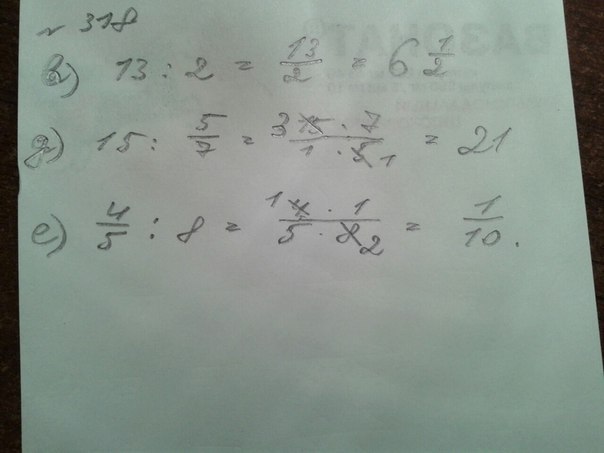 № 318
в) 13 : 2 = 13/2 = 6 1/2
д) 15 : 5/7 = 3 15 · 7 / 1 · 5 1 = 21
е) 4/5 : 8 = 1 4 · 1 / 5 · 8 2 = 1/10.